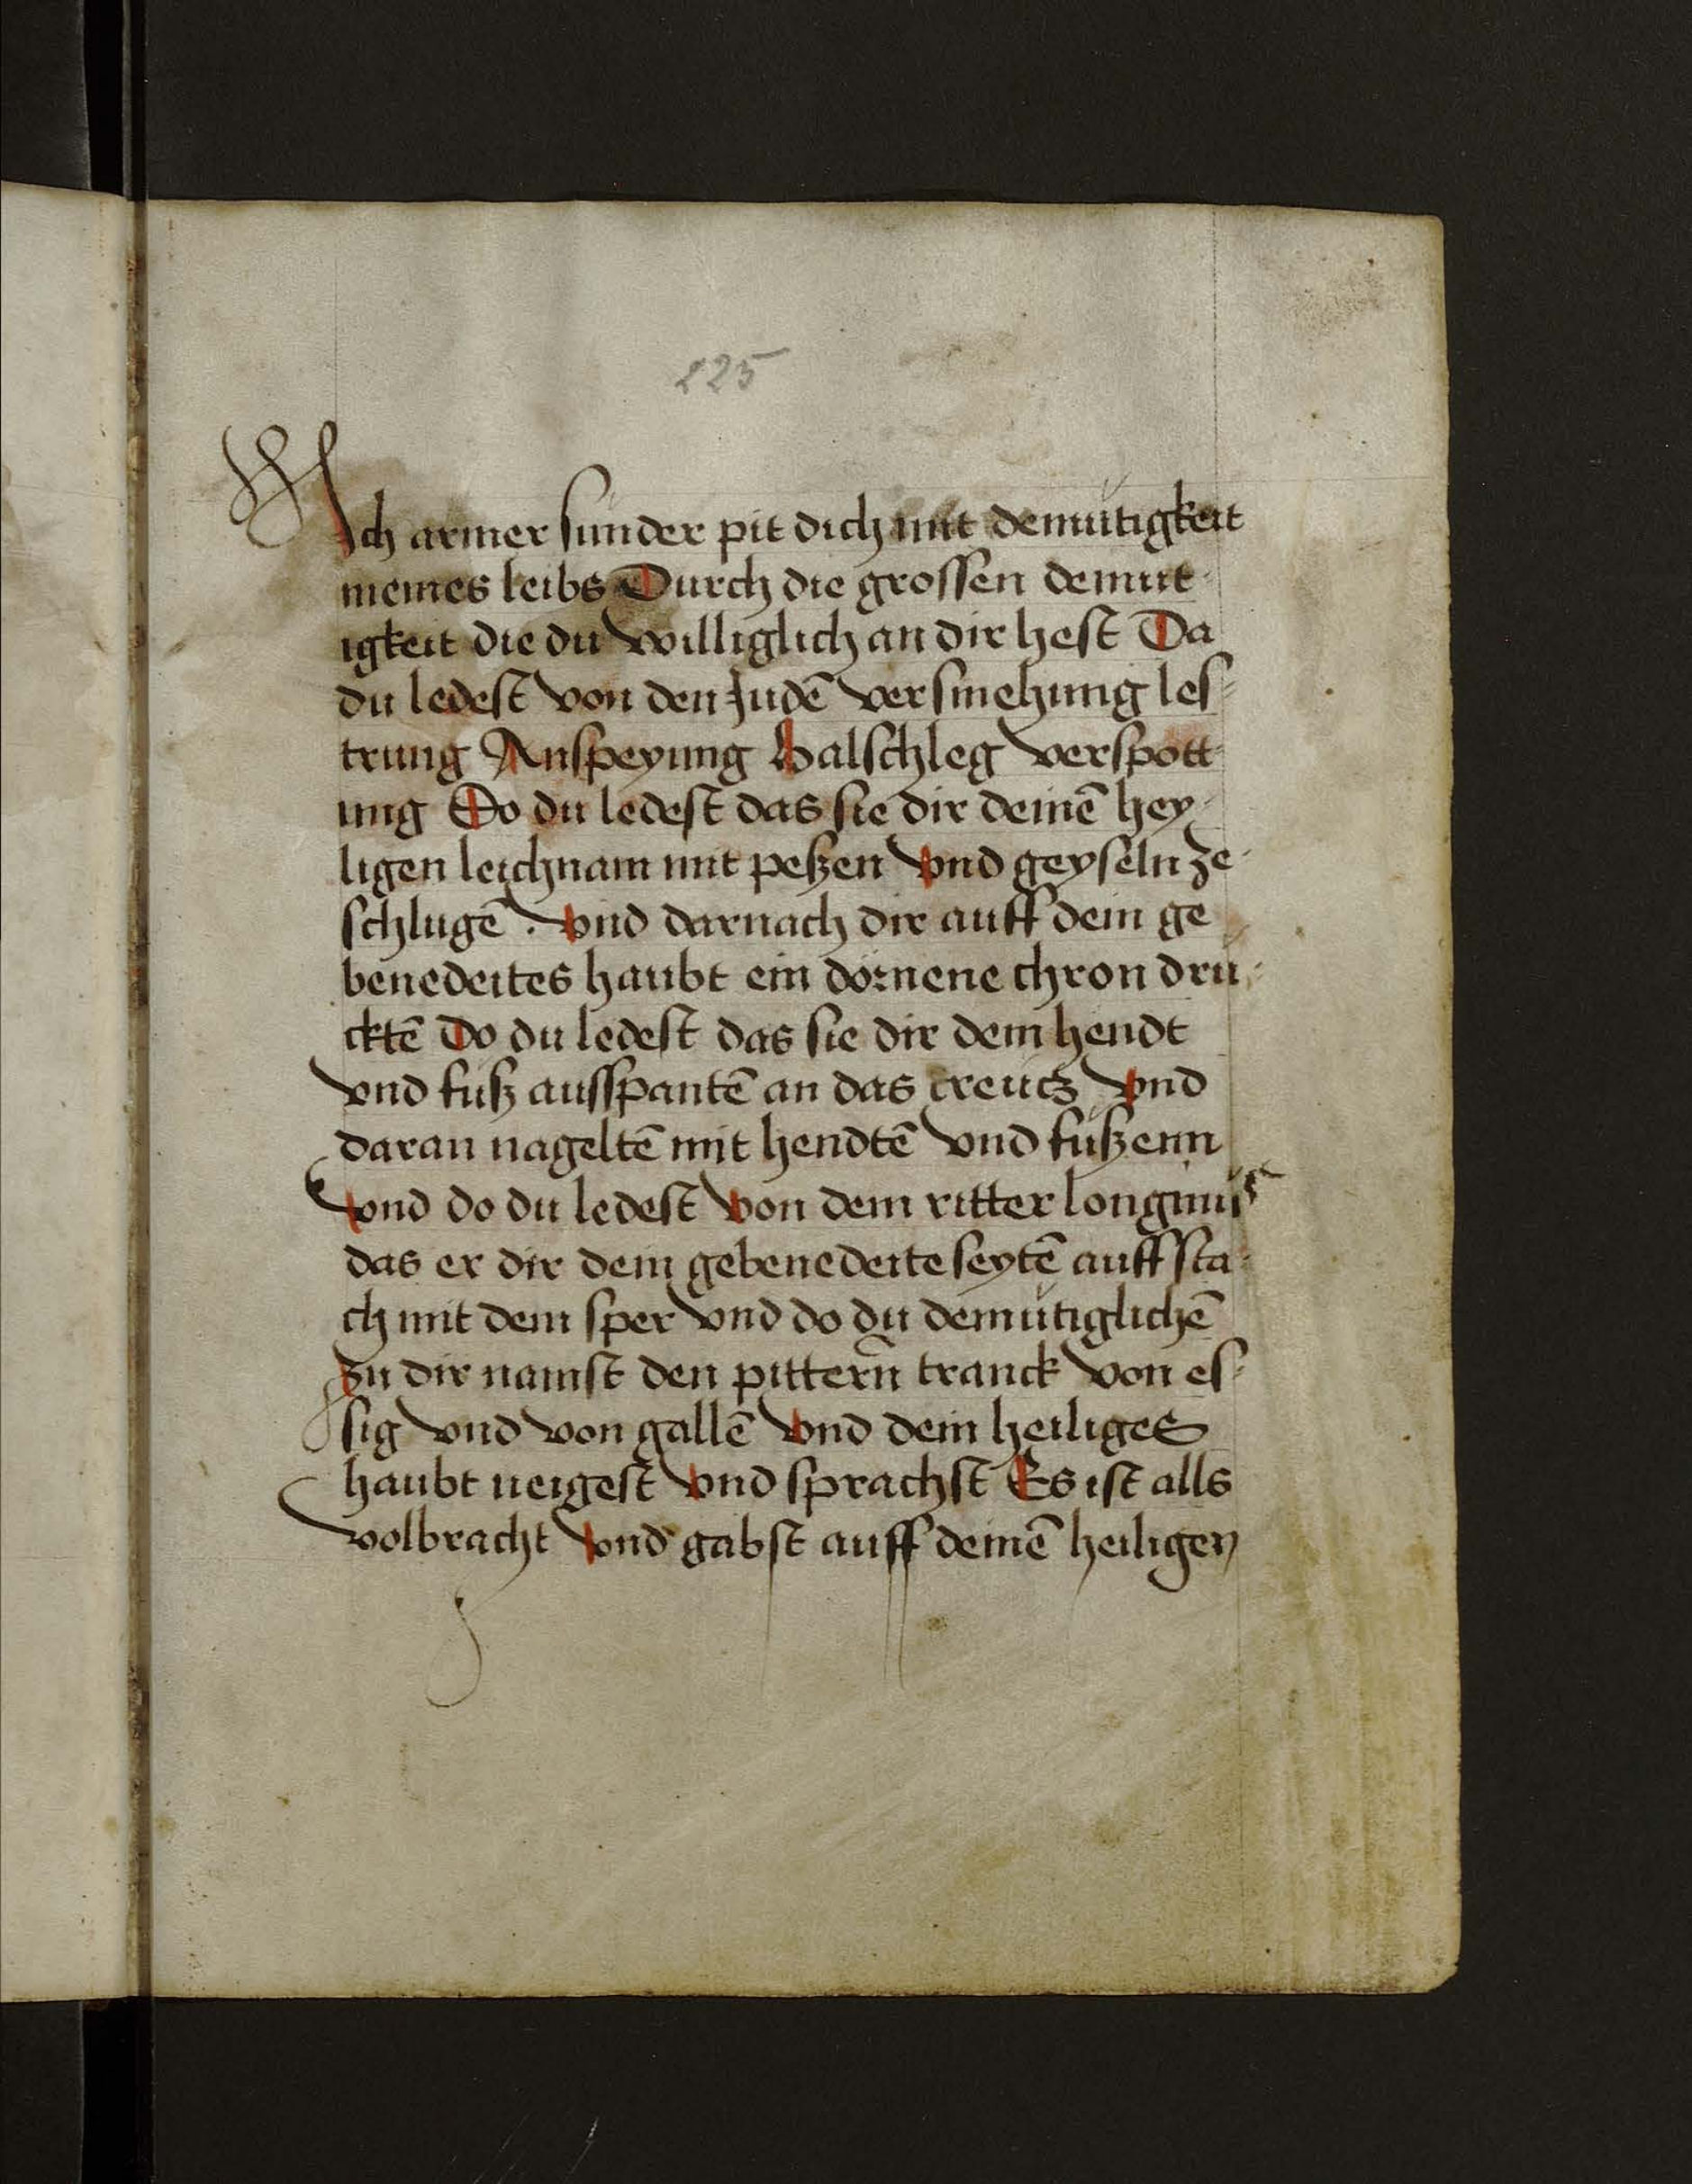 225
Ich armer sunder pit dich mit demütigkeit
meines leibs Durch die grossen demut-
igkeit die du williglich an dir hest Da
du ledest von den Judē versmehung les-
trung Anspeyung Halschleg verspott-
ung Do du ledest das sie dir deinē hey-
ligen leichnam mit peßen vnd geyseln ze-
schlugē . vnd darnach dir auff dein ge-
benedeites haubt ein dörnene chron dru-
cktē Do du ledest das sie dir dein hendt
vnd fuß ausspantē an das creütz vnd
daran nageltē mit hendtē vnd füßenn
vnd do du ledest von dem ritter longinus
das er dir dein gebenedeite seytē auff sta-
ch mit dem sper vnd do du demütiglichē
zu dir namst den pittern̄ tranck von es-
sig vnd von gallē vnd dein heiliges
haubt neigest vnd sprachst Es ist alls
volbracht vnd gabst auff deinē heiligen